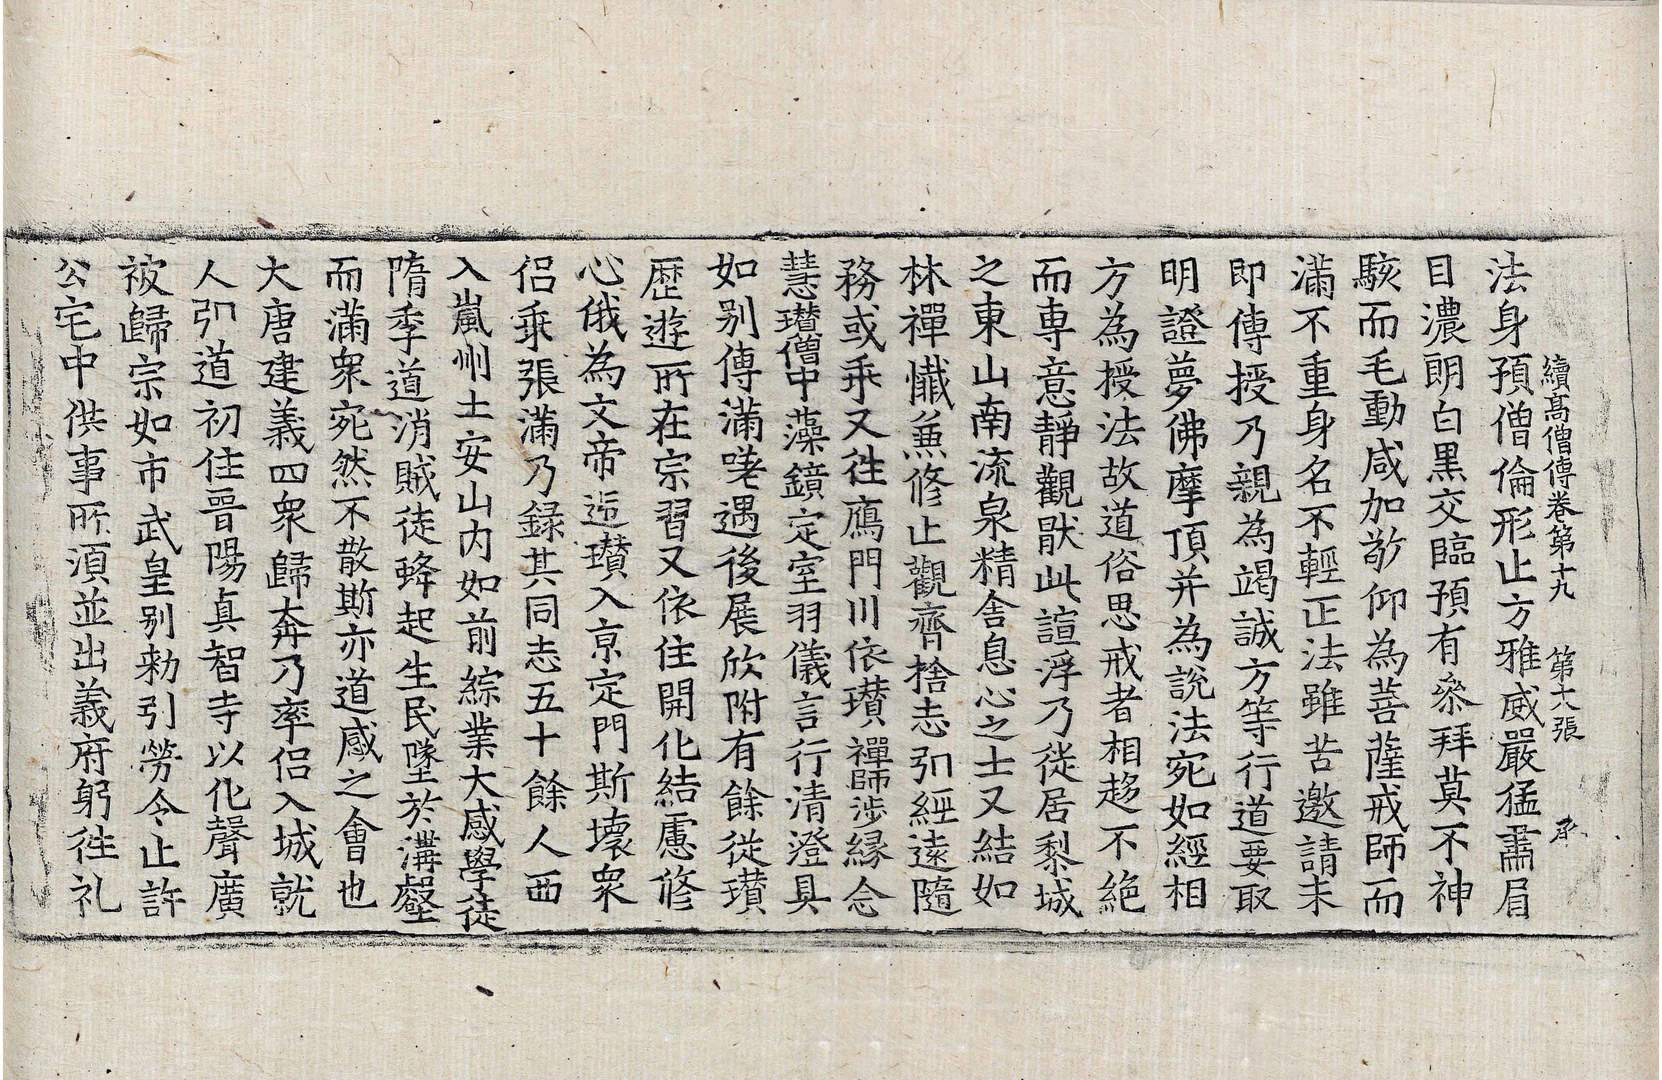 續高僧傳卷第十九　第十六張　承
法身預僧倫形止方雅威嚴猛肅眉
目濃朗白黑交臨預有叅拜莫不神
駭而毛動咸加敬仰為菩薩戒師而
滿不重身名不輕正法雖苦邀請未
即傳授乃親為竭誠方等行道要取
明證夢佛摩頂并為說法宛如經相
方為授法故道俗思戒者相趍不絕
而專意靜觀猒此諠浮乃徙居黎城
之東山南流泉精舍息心之士又結如
林禪懺兼修止觀齊捨志引經遠隨
務或乖又往鴈門川依瓚禪師涉緣念
慧瓚僧中藻鏡定室羽儀言行清澄具
如別傳滿嗟遇後展欣附有餘從瓚
歷遊所在宗習又依住開化結慮修
心俄為文帝追瓚入京定門斯壞眾
侶乖張滿乃録其同志五十餘人西
入嵐州土安山內如前綜業大感學徒
隋季道消賊徒蜂起生民墜於溝壑
而滿眾宛然不散斯亦道感之會也
大唐建義四眾歸奔乃率侶入城就
人引道初住晉陽真智寺以化聲廣
被歸宗如市武皇別勑引勞令止許
公宅中供事所須並出義府躬往礼